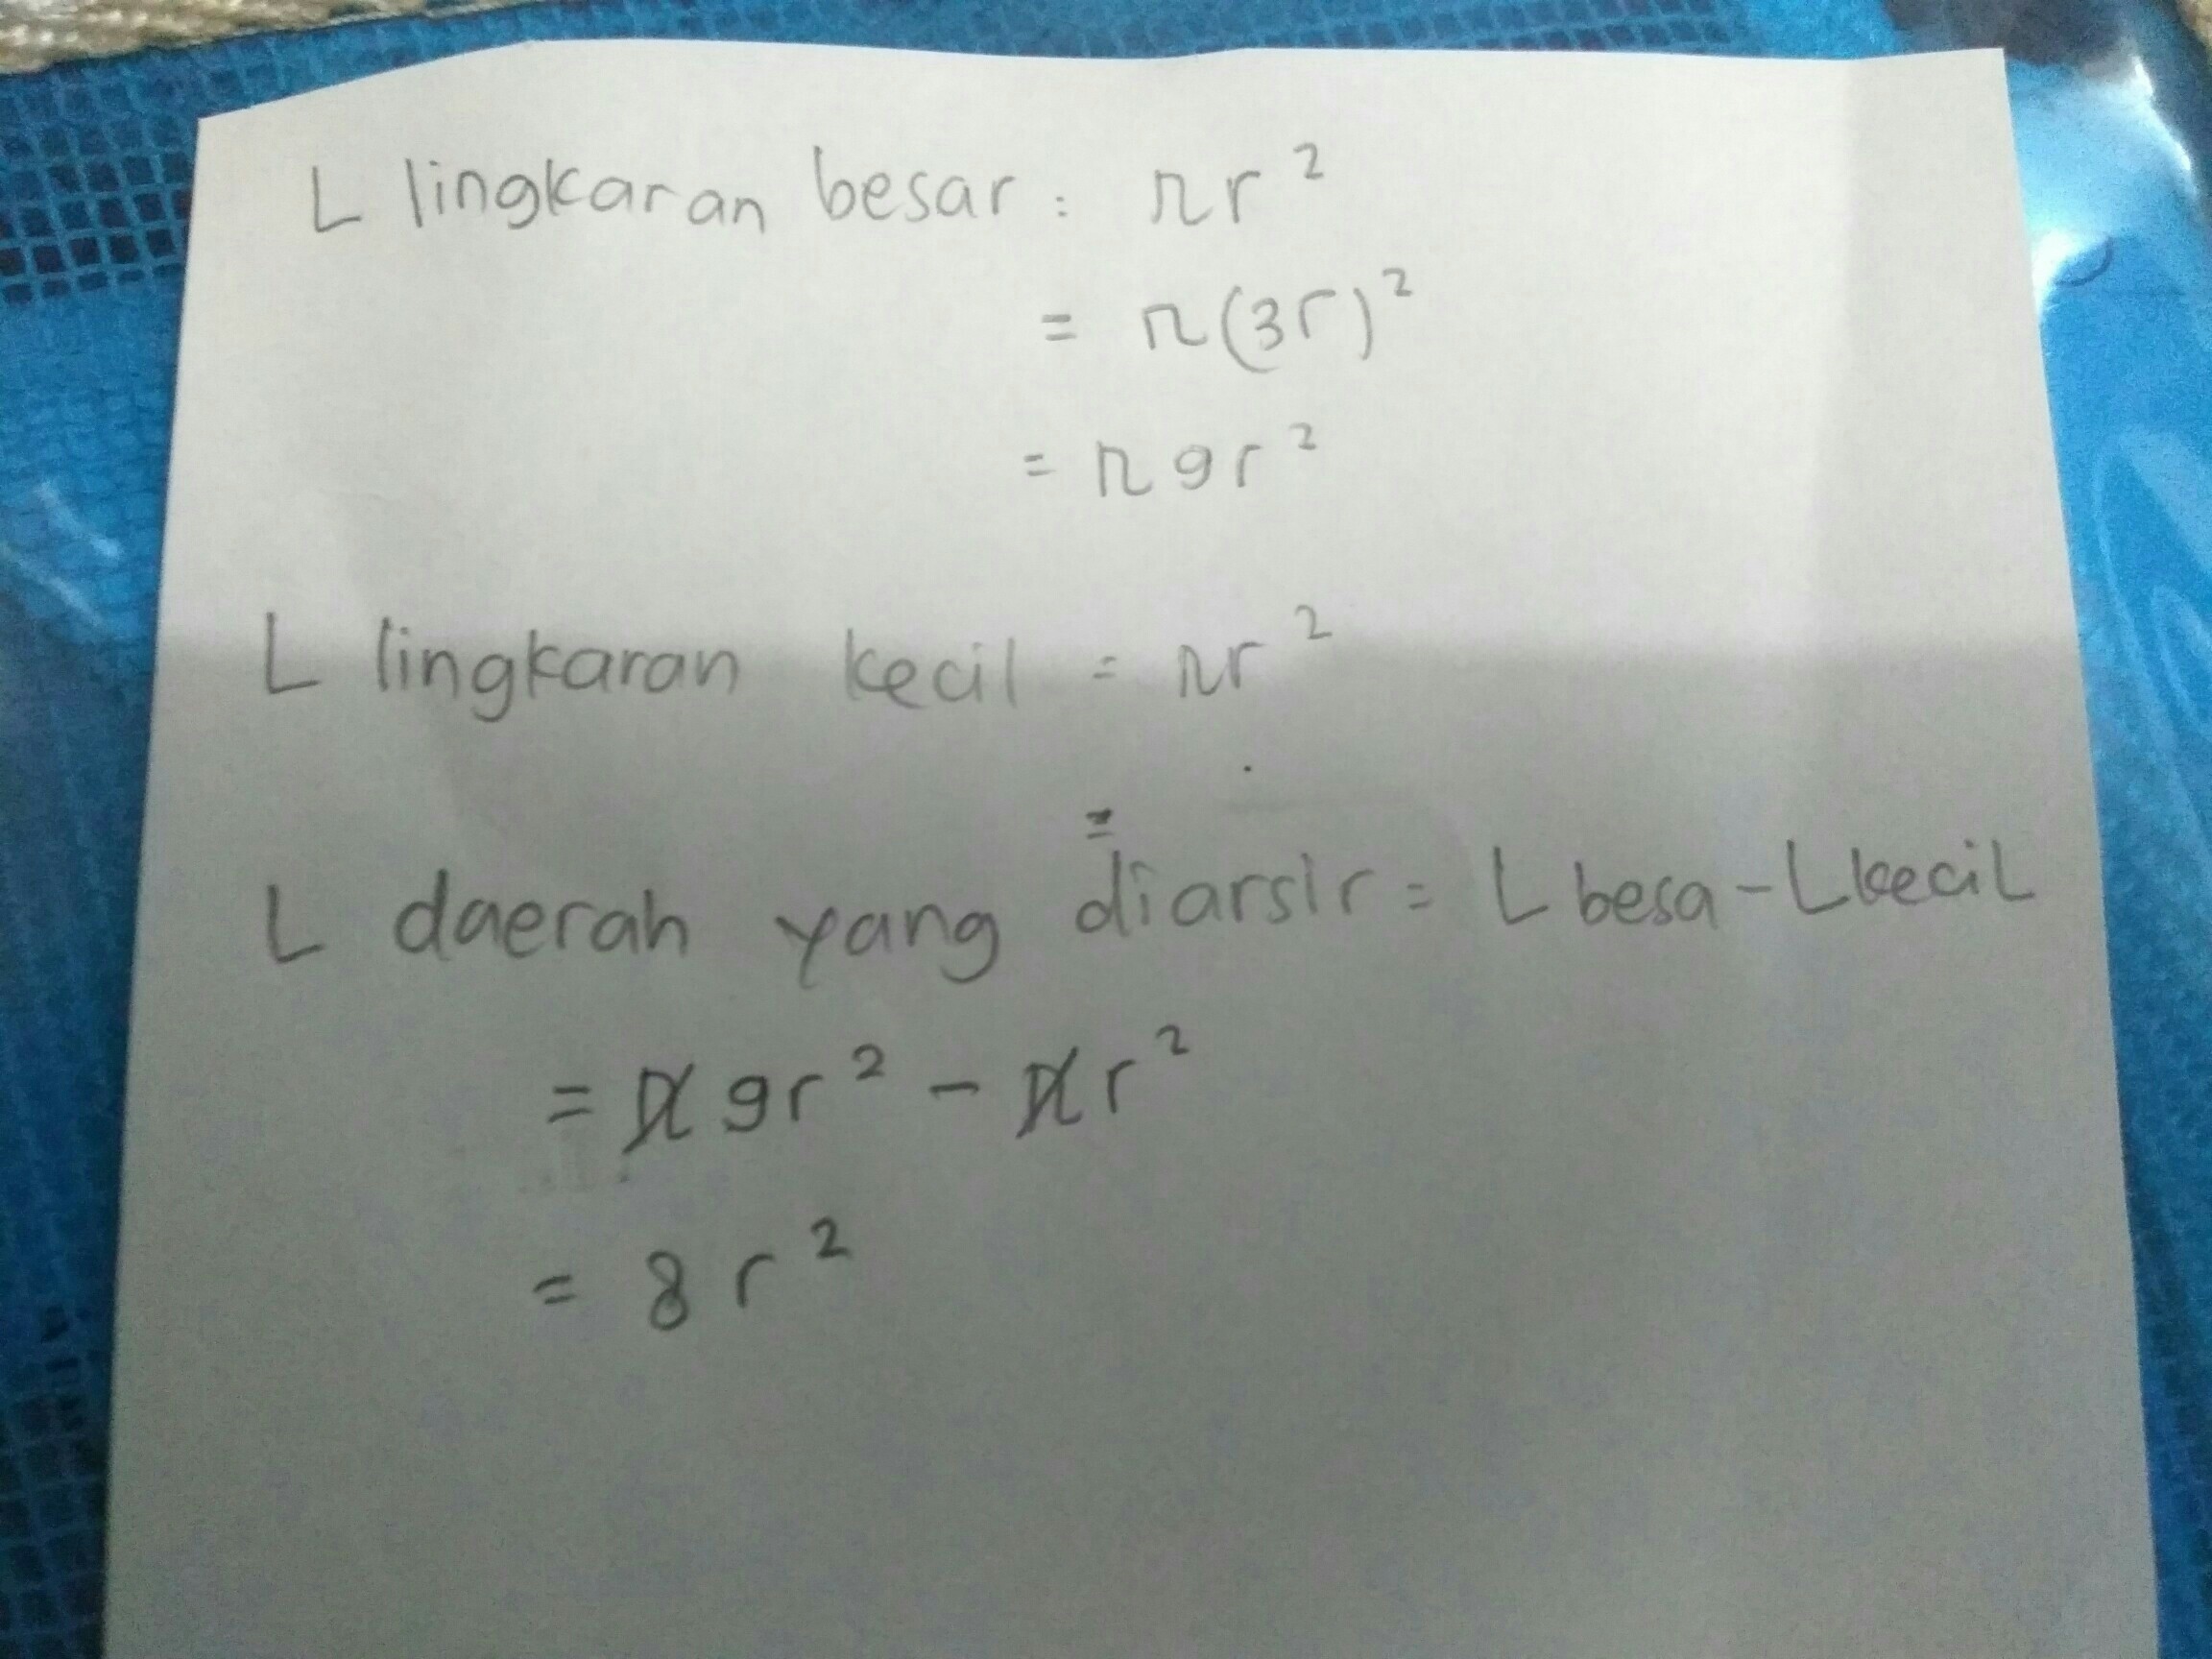 L lingkaran besar : πr²
= π(3r)²
= π9r²
L lingkaran kecil = πr²
=
L daerah yang diarsir = L besa - L kecil
= π9r² - πr²
= 8r²